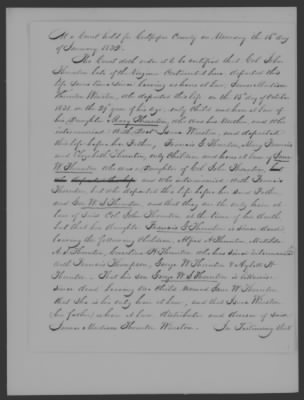 At a Court held for Culpeper County on Monday the 16th day
of January 1832.
The Court doth order it to be certified that Col John
Thornton late of the Virginia Continental line departed
this life some time since leaving as heirs at law, James Madison
Thornton Winston, who departed this life on the 15th day of October
1831 in the 29th year of his age, only Child and heir at law of
his daughter Mary Thornton, who was his Mother, and who
intermarried with Isaac Winston, and departed
this life before her Father, Francis G Thornton, Mary Francis
and Elizabeth Thornton, only Children and heirs at law of Jane
W Thornton who was a daughter of Col John Thornton,
and who intermarried with Francis
Thornton but who departed this life before her said Father
and Geo W S Thornton, and that they are the only heirs at
law of said Col John Thornton at the time of his death,
but that his daughter Francis G Thornton is since dead
leaving the following Children, Alfred A Thornton, Matilda
A F Thornton, H Thornton who has since intermarried
with Francis Thompson, George W Thornton & H
Thornton. That his son George W S Thornton is likewise
since dead leaving one Child named Jane W Thornton
that she is his only heir at law, and that Isaac Winston
(his father) is heir at law, distributee and devisee of said
James Madison Thornton Winston. In Testimony that